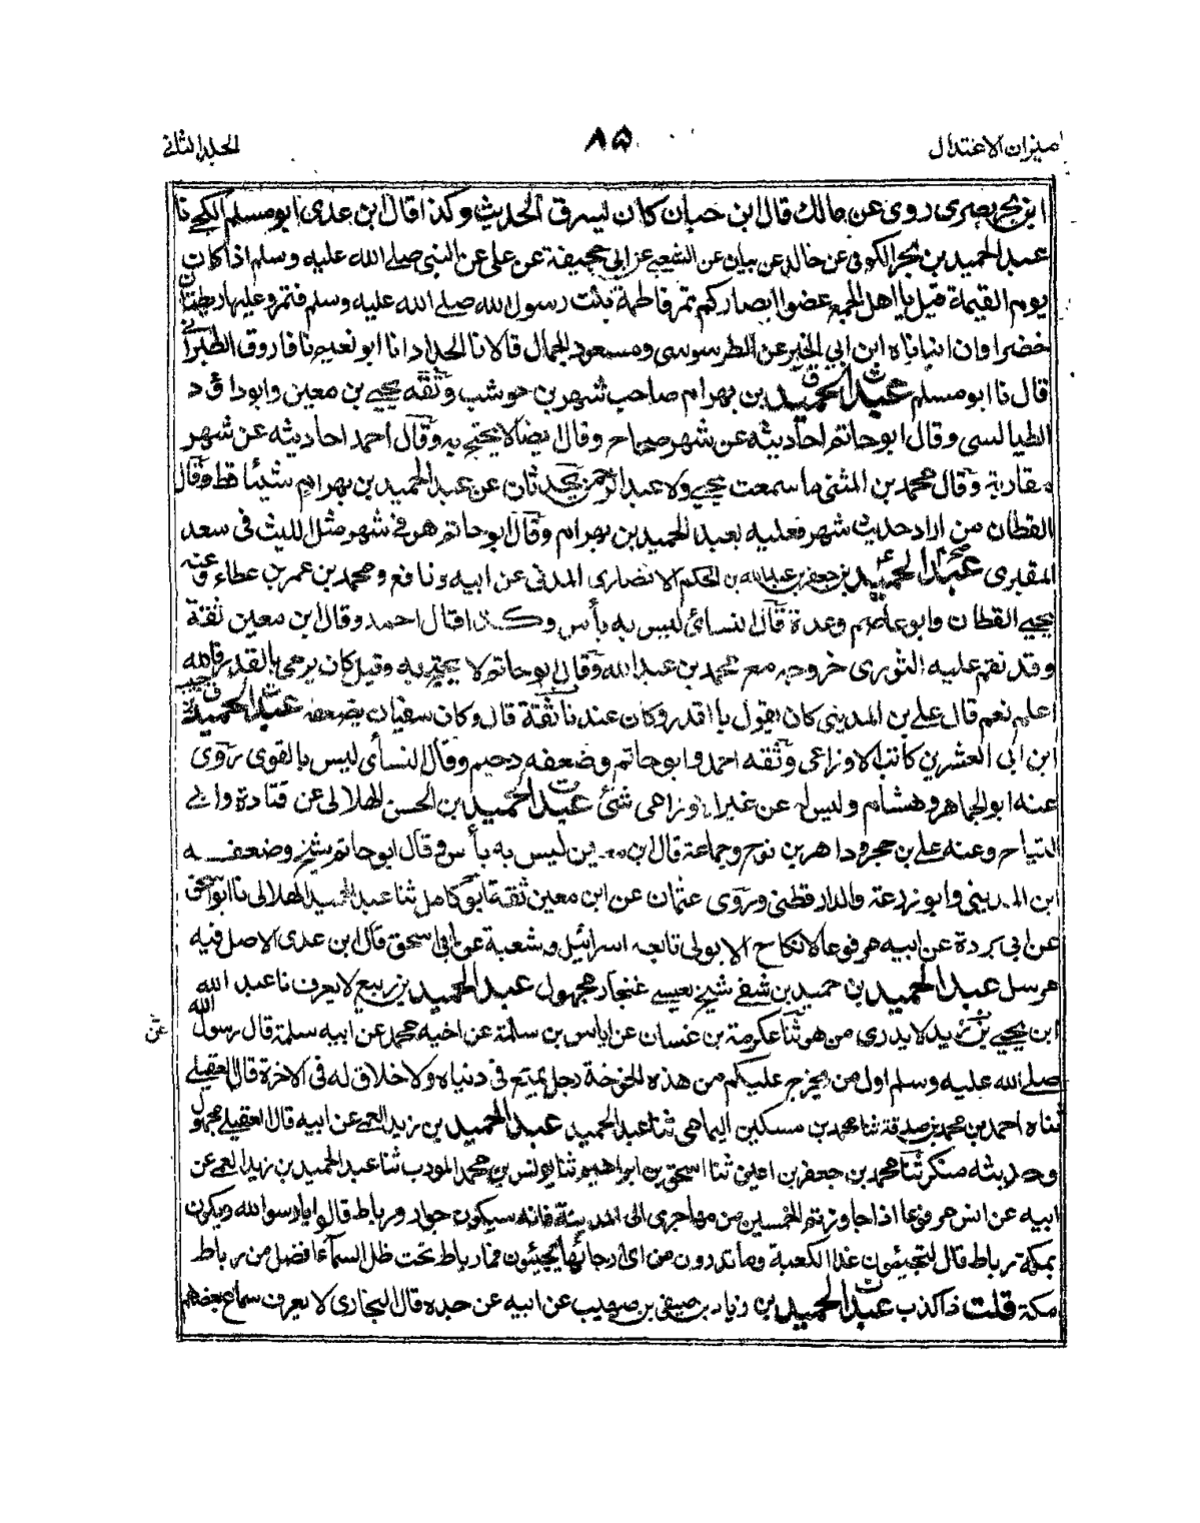 ميزان الاعتدال
۸۵
الجلد الثانى
ابن بحر بصرى روى عن مالك قال ابن حبان كان يسرق الحديث وكذا قال ابن عدى ابو مسلم الكجى نا
عبد الحميد بن بحر الكوفى عن خالد عن بيان عن الشعبى عن ابى جحيفة عن على عن النبى صلى الله عليه وسلم اذا كان
يوم القيمة قيل يا اهل الجمع غضوا ابصاركم تمر فاطمة بنت رسول الله صلى الله عليه وسلم فتمر وعليها ريطتان
خضراوان انبانا ابن ابى الخير عن الطرسوسى ومسعود الجمال قالا نا الحداد انا ابو نعيم نا فاروق الطبرانى
قال نا ابو مسلم عبد الحميد بن بهرام صاحب شهر بن حوشب وثقه يحيى بن معين وابو داؤد
الطيالسى وقال ابو حاتم احاديثه عن شهر صحاح وقال ايضا لا يحتج به وقال احمد احاديثه عن شهر
مقاربة وقال محمد بن المثنى ما سمعت يحيى ولا عبد الرحمن يحدثان عن عبد الحميد بن بهرام شيئا قط وقال
القطان من اراد حديث شهر فعليه بعبد الحميد بن بهرام وقال ابو حاتم هو فى شهر مثل الليث فى سعد
المقبرى عبد الحميد بن جعفر بن عبد الله بن الحكم الانصارى المدنى عن ابيه ونافع ومحمد بن عمر بن عطاء وعنه
يحيى القطان وابو عاصم وعدة قال النسائى ليس به بأس وكذا قال احمد وقال ابن معين ثقة
وقد نقم عليه الثورى خروجه مع محمد بن عبد الله وقال ابو حاتم لا يحتج به وقيل كان يرمى بالقدر فالله
اعلم نعم قال على بن المدينى كان يقول بالقدر وكان عندنا ثقة قال وكان سفيان يضعفه عبد الحميد بن حبيب
ابن ابى العشرين كاتب الاوزاعى وثقه احمد وابو حاتم وضعفه دحيم وقال النسائى ليس بالقوى روى
عنه ابو الجماهر وهشام وليس له عن غير الاوزاعى شئ عبد الحميد بن الحسن الهلالى عن قتادة وابى
التياح وعنه على بن حجر وداهر بن نوح وجماعة قال ابن معين ليس به بأس وقال ابو حاتم شيخ وضعفه
ابن المدينى وابو زرعة والدارقطنى وروى عثمان عن ابن معين ثقة ابو كامل ثنا عبد الحميد الهلالى نا ابو اسحق
عن ابى بردة عن ابيه مرفوعا لا نكاح الا بولى تابعه اسرائيل وشعبة عن ابى اسحق قال ابن عدى الاصل فيه
مرسل عبد الحميد بن حميد بن شفى شيخ لعيسى غنجار مجهول عبد الحميد بن ربيع لا يعرف نا عبد الله
ابن يحيى بن يزيد لا يدرى من هو ثنا عكرمة بن غسان عن اياس بن سلمة عن اخيه محمد عن ابيه سلمة قال رسول الله
صلى الله عليه وسلم اول من يخرج عليكم من هذه الخوخة رجل يمتع فى دنياه ولا خلاق له فى الاخرة قال العقيلى
ثناه احمد بن محمد بن صدقة ثنا محمد بن مسكين اليمامى ثنا عبد الحميد عبد الحميد بن زيد العمى عن ابيه قال العقيلى مجهول
وحديثه منكر ثنا محمد بن جعفر بن اعين ثنا اسحق بن ابراهيم ثنا يونس بن محمد المودب ثنا عبد الحميد بن زيد العمى عن
ابيه عن انس مرفوعا اذا جاوزتم الخمسين من مهاجرى الى المدينة فانه سيكون جوار ورباط قالوا يا رسول الله ويكون
بمكة رباط قال لتجيئون غذا الكعبة وما تدرون من اى ارجائها يجيئون فما رباط تحت ظل السماء افضل من رباط
مكة قلت ذا كذب عبد الحميد بن زياد بن صيفى بن صهيب عن ابيه عن جده قال البخارى لا يعرف سماع بعضهم
عن